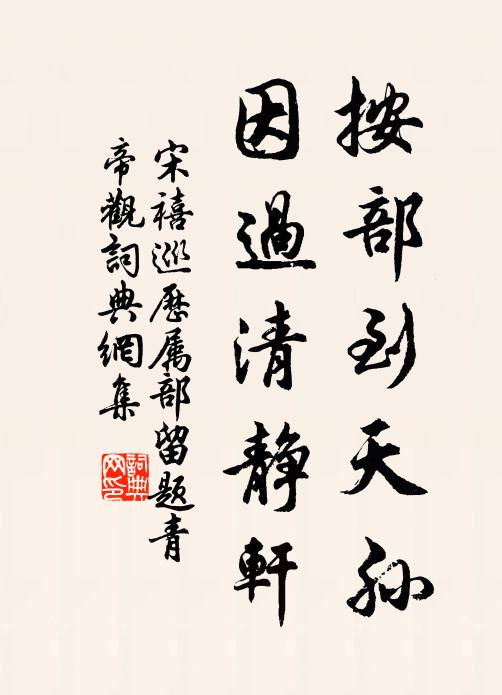 按部到天孙
因過清靜軒
宋禧巡歷属部留题青
帝觀詞典網集
詞典
网印